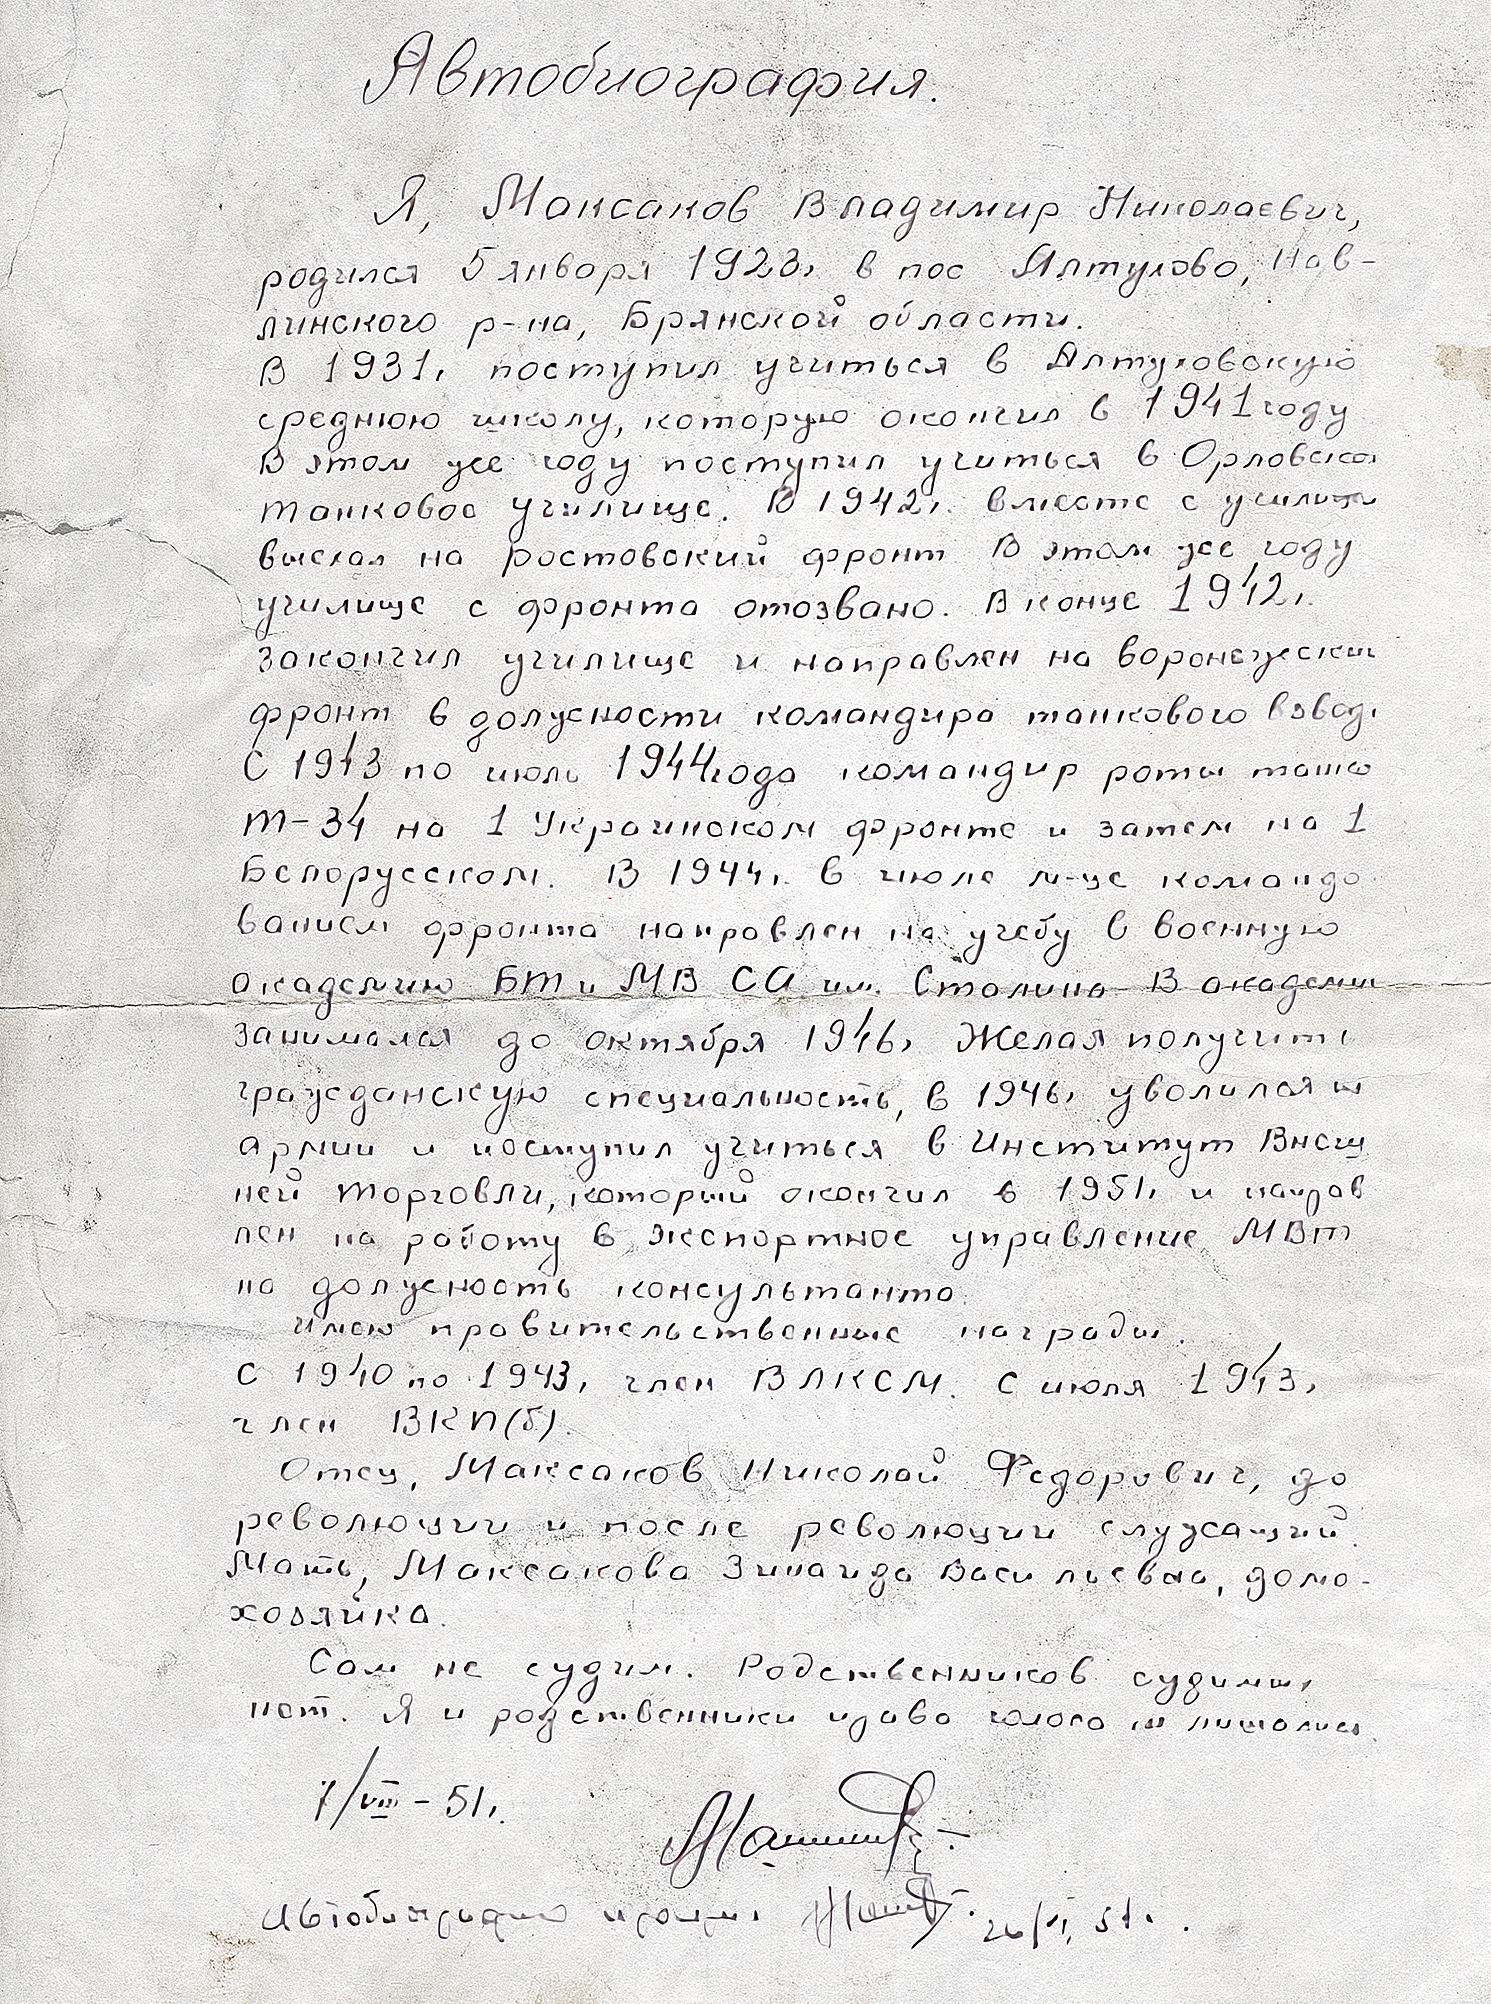 Автобиография.
Я, Максаков Владимир Николаевич,
родился 5 января 1923г. в пос Алтухово, Нав-
линского р-на, Брянской области.
В 1931г. поступил учиться в Алтуховскую
среднюю школу, которую окончил в 1941 году
В этом же году поступил учиться в Орловское
танковое училище. В 1942г. вместе с училищем
выехал на ростовский фронт В этом же году
училище с фронта отозвано. В конце 1942г.
закончил училище и направлен на воронежский
фронт в должности командира танкового взвода.
С 1943 по июль 1944 года командир роты танков
Т-34 на 1 Украинском фронте и затем на 1
Белорусском. В 1944г. в июле м-це командо
ванием фронта направлен на учебу в военную
академию БТ и МВ СА им. Сталина В академии
занимался до октября 1946г. Желая получить
гражданскую специальность, в 1946г. уволился из
армии и поступил учиться в Институт Внеш
ней торговли, который окончил в 1951г. и направ
лен на работу в Экспортное управление МВТ
на должность консультанта.
Имею правительственные награды.
С 1940 по 1943г. член ВЛКСМ. С июля 1943г.
член ВКП(б).
Отец, Максаков Николай Федорович, до
революции и после революции служащий.
Мать, Максакова Зинаида Васильевна, домо-
хозяйка.
Сам не судим. Родственников судимых
нет. Я и родственники права голоса не лишались.
7/VIII - 51г.
Автобиографию 26/VI, 51г.